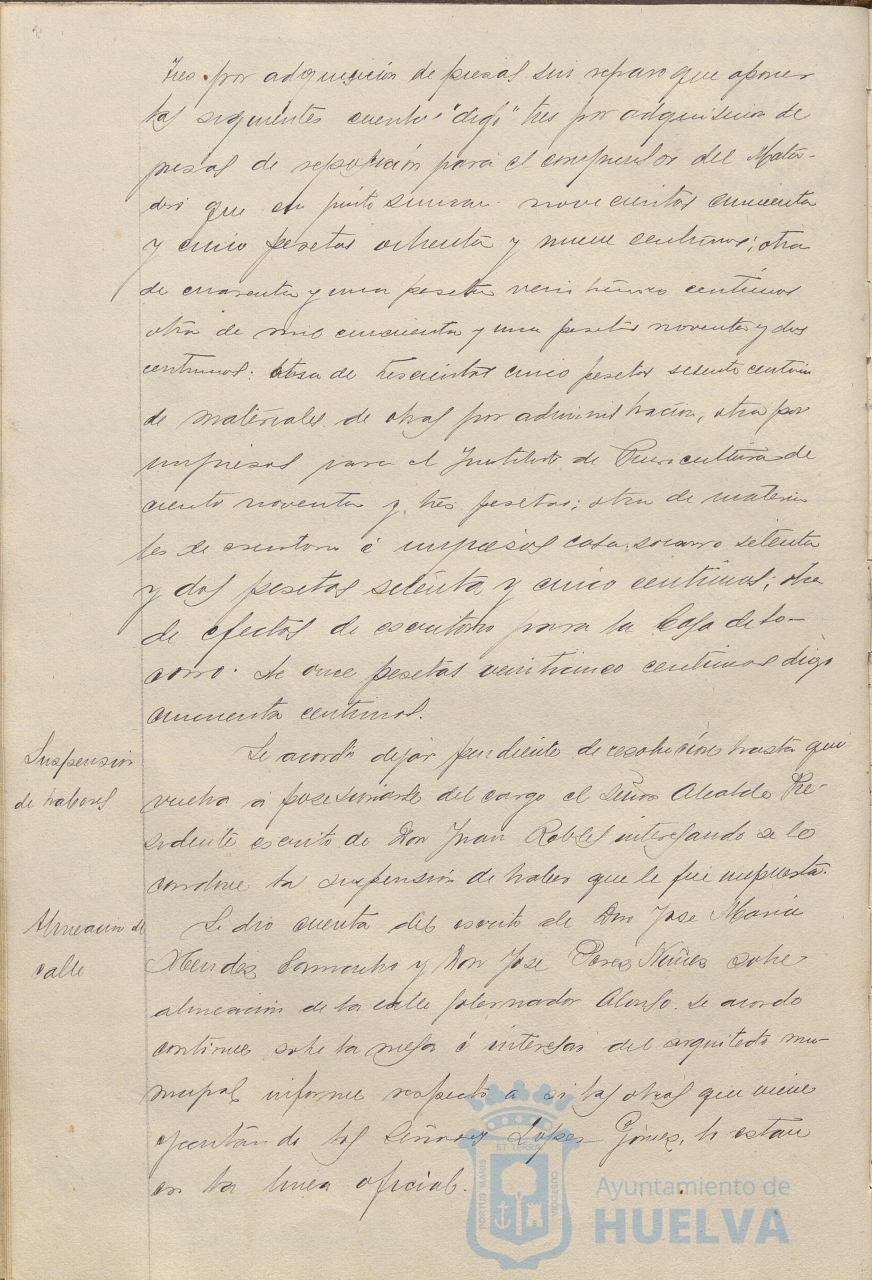 tres por adquisición de piezas sin reparo que oponer
las siguientes cuentas "digo" tres por adquisicion de
piezas de reposición para el compresor del Mata-
dero que en junto suman novecientas cincuenta
y cinco pesetas ochenta y nueve centimos; otra
de cuarenta y una peseta veinticinco centimos
otra de mil cincuenta y una pesetas noventa y dos
centimos. otra de trescientas cinco pesetas sesenta centim
de materiales de obras por administración, otra por
impresos para el Instituto de Puericultura de
ciento noventa y tres pesetas; otra de materia
les de escritorio é impresos casa socorro setenta
y dos pesetas setenta y cinco centimos; otra
de efectos de escritorio para la Casa de So-
corro. de once pesetas veinticinco centimos digo
cincuenta centimos.
Suspensión
de haberes
Se acordó dejar pendiente de resolución hasta que
vuelva a posesionarse del cargo el Señor Alcalde Pre-
sidente escrito de Don Juan Robles interesando se le
condone la suspensión de haber que le fue impuesta.
Alineacion de
calle
Se dio cuenta del escrito de Don Jose Maria
Mendez Camacho y Don Jose Perez Nuñez sobre
alineación de la calle Gobernador Alonso. Se acordo
continue sobre la mesa é interesar del arquitecto mu-
nicipal informe respecto a si las obras que viene
ejecutando los Señores Lopez Gómez, lo estan
en la linea oficial.
PORTUS MARIS
ET TERRÆ
CUSTODIA
Ayuntamiento de
HUELVA